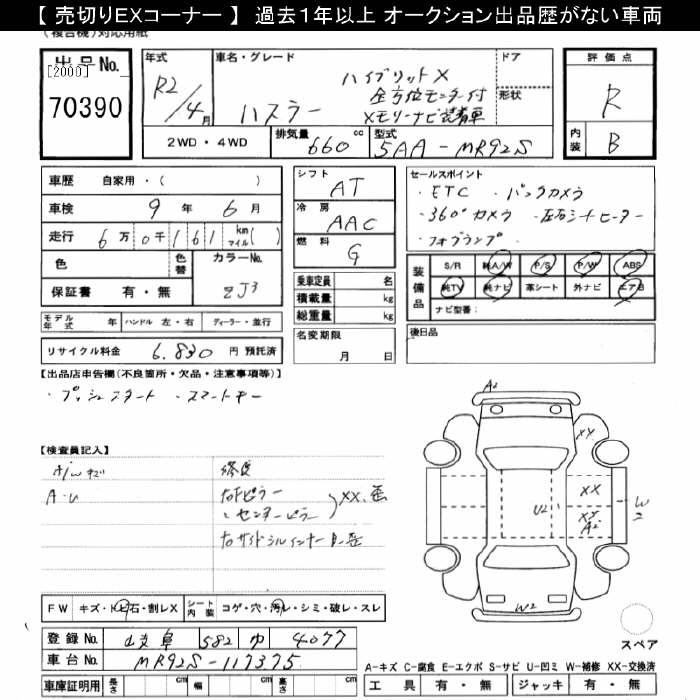 【 売切りEXコーナー 】 過去１年以上 オークション出品歴がない車両
(複合機)対応用紙
出品No.
[2000]
70390
年式
R2/4月
車名・グレード
ハスラー
ハイブリットX
全方位モニター付
メモリーナビ装着車
ドア
形状
評価点
R
内装
B
2WD・4WD
排気量 660 cc
型式 5AA-MR92S
車歴 自家用・( )
車検 9年 6月
走行 6万0千161 km マイル( )
色
色替
カラーNo.
ZJ3
保証書 有・無
シフト AT
冷房 AAC
燃料 G
乗車定員 名
積載量 kg
総重量 kg
セールスポイント
・ETC ・バックカメラ
・360°カメラ ・左右シートヒーター
・フォグランプ・
装備品
S/R 純A/W P/S P/W ABS
純TV 純ナビ 革シート 外ナビ エアB
ナビ型番：
モデル年式 年 ハンドル 左・右 ディーラー・並行
リサイクル料金 6.830 円 預託済
名変期限
月 日
後日品
【出品店申告欄(不良箇所・欠品・注意事項等)】
・プッシュスタート ・スマートキー
【検査員記入】
A/wキズ
A・U
修復
右Fピラー
〃センターピラー
XX、歪
A2
XX
XX
XX
A2
U2
W2
W2
FW キズ・トビ石・割レX
シート内装 コゲ・穴・汚レ・シミ・破レ・スレ
登録No. 岐阜 582 や 4077
車台No. MR92S-117375
車庫証明用 長さ cm 幅 cm 高さ cm
スペア
A-キズ C-腐食 E-エクボ S-サビ U-凹ミ W-補修 XX-交換済
工具 有・無 ジャッキ 有・無